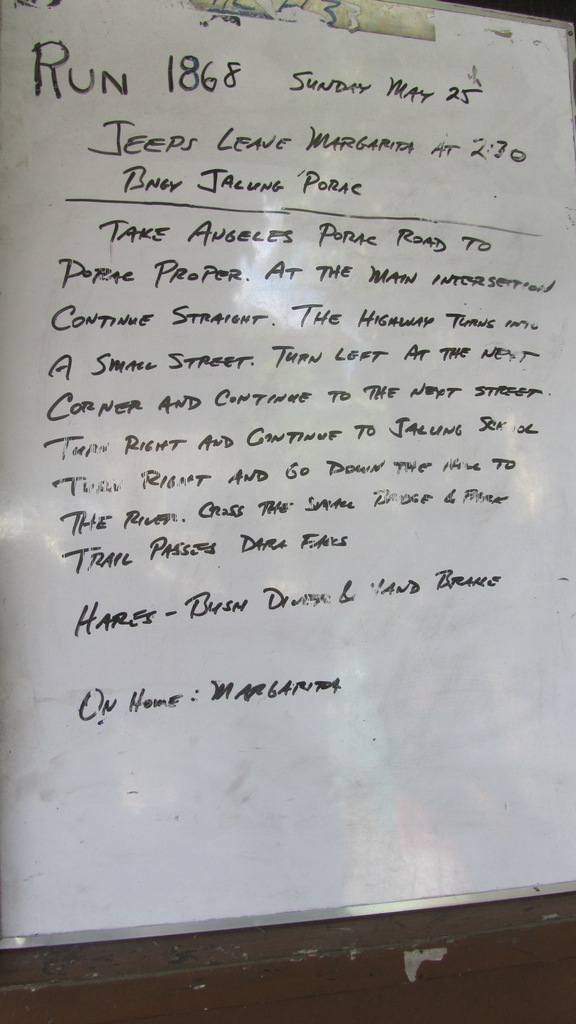 RUN 1868 SUNDAY MAY 25
JEEPS LEAVE MARGARITA AT 2:30
BNGY JALUNG PORAC
TAKE ANGELES PORAC ROAD TO
PORAC PROPER. AT THE MAIN INTERSETION
CONTINUE STRAIGHT. THE HIGHWAY TURNS INTO
A SMALL STREET. TURN LEFT AT THE NEXT
CORNER AND CONTINUE TO THE NEXT STREET.
TURN RIGHT AND CONTINUE TO JALUNG SCHOOL
TURN RIGHT AND GO DOWN THE HILL TO
THE RIVER. CROSS THE SMALL BRIDGE & PARK
TRAIL PASSES DARA FALLS
HARES - BUSH DIVER & HAND BRAKE
ON HOME: MARGARITA